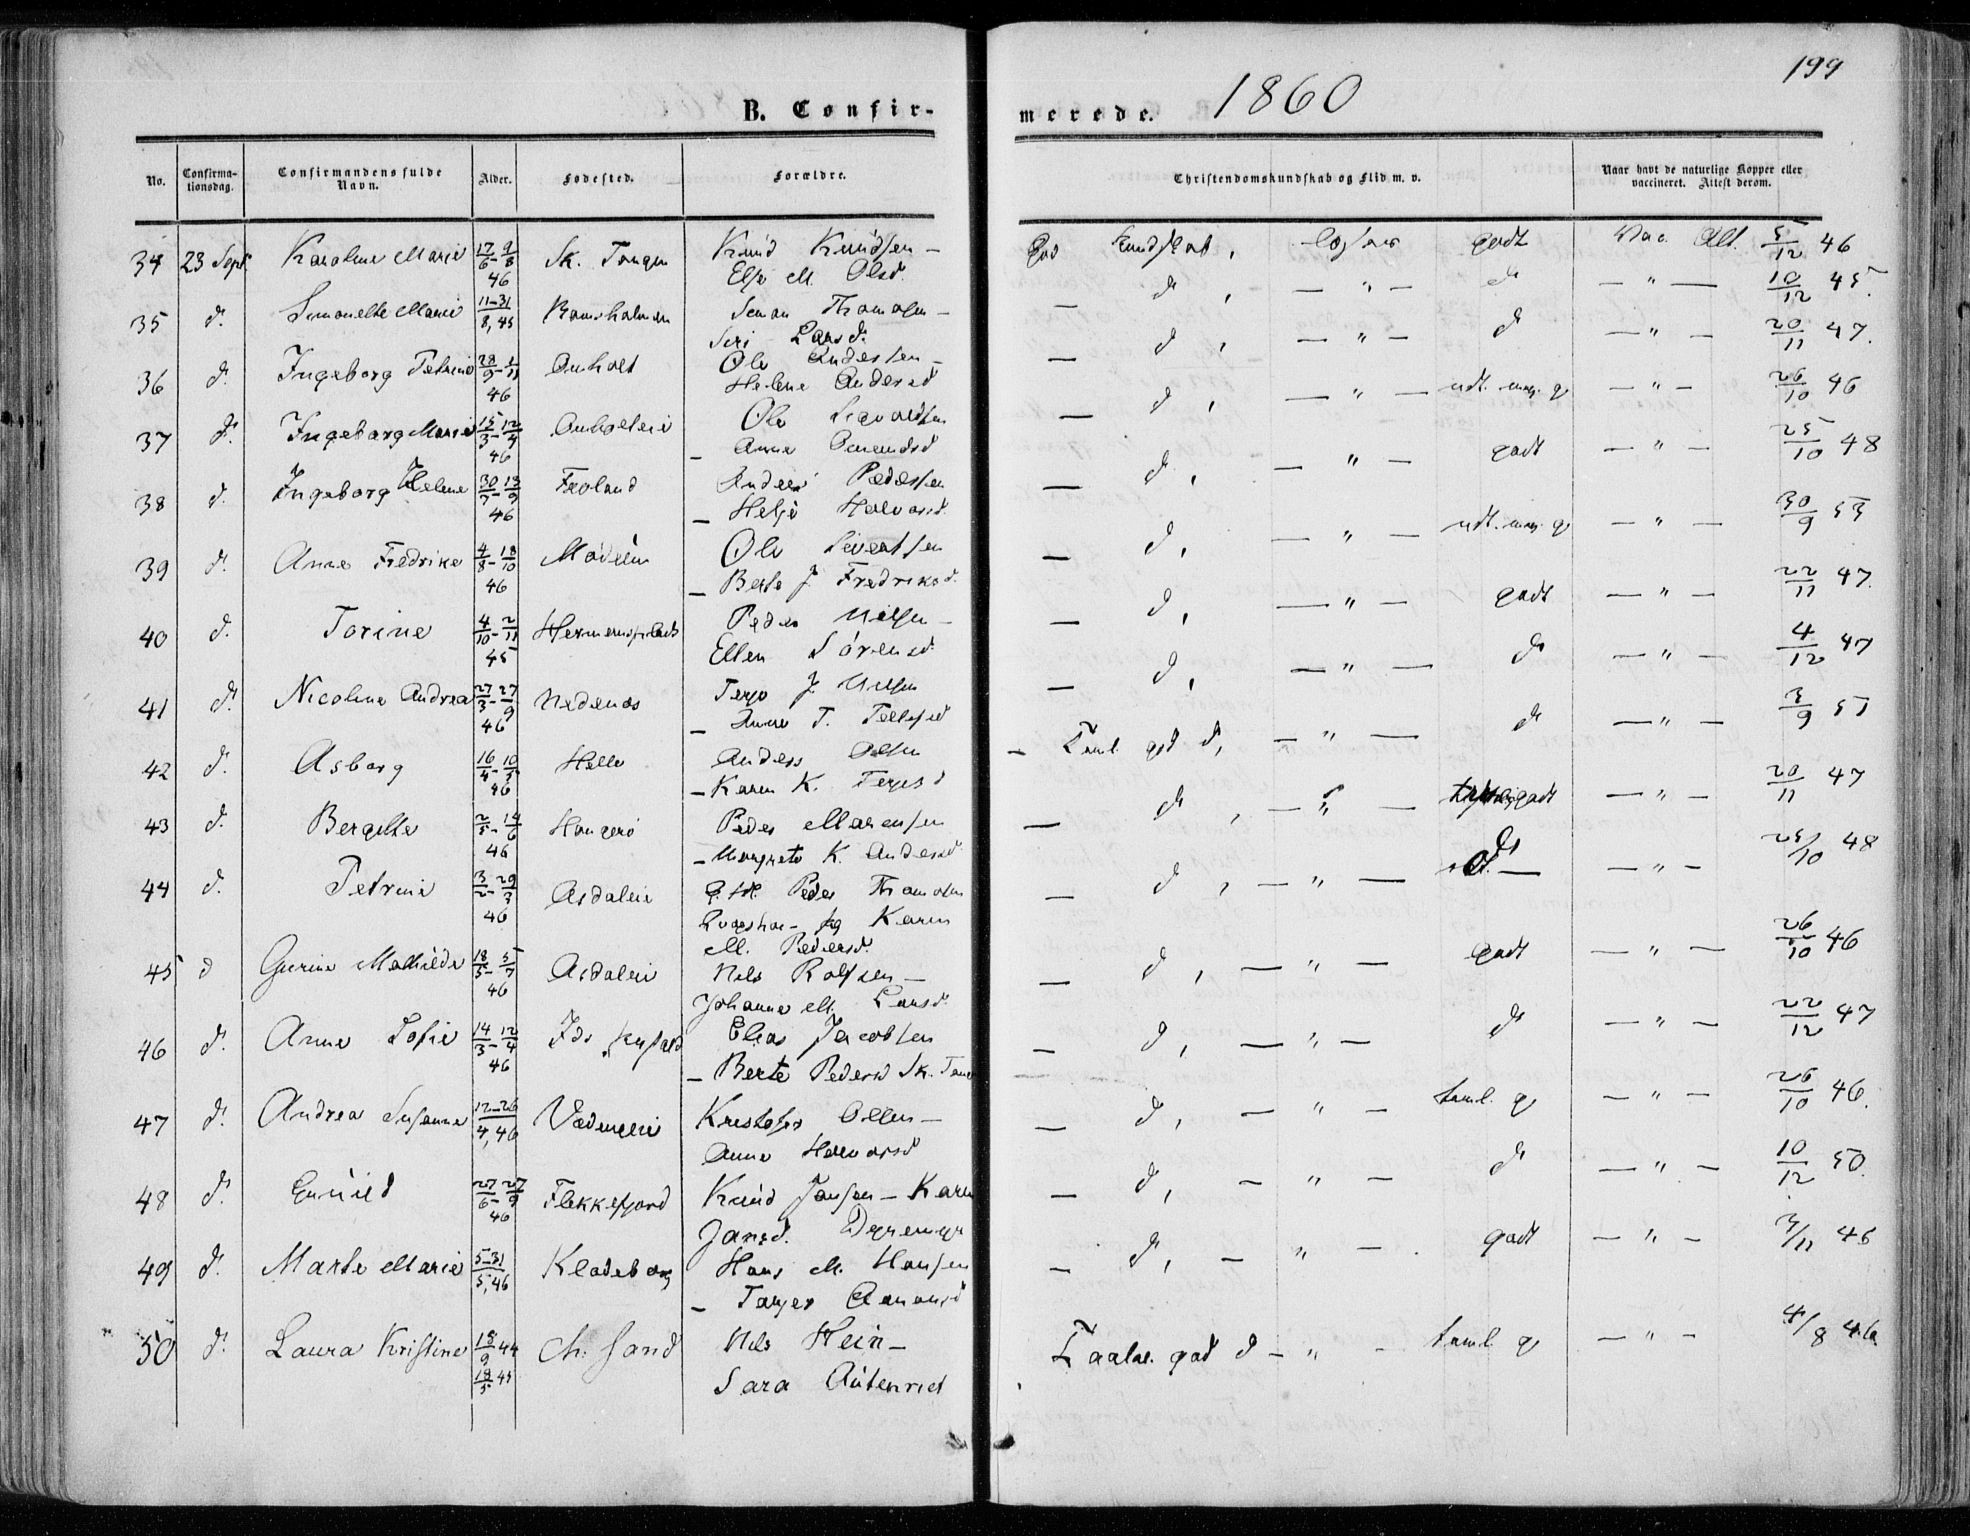 199
B. Confir-
merede. 1860
No.
Confirma-
tionsdag.
Confirmandens fulde
Navn.
Alder.
Fødested.
Forældre.
Christendomskundskab og Flid m. v.
Naar havt de naturlige Kopper eller
vaccineret. Attest derom.
34 23 Sept. Karoline Marie 17/6-9/8 46 Sk. Tangen Knud Knudsen -
Else M. Olsd. God Kundskab, godt Vac. Att. 5/12 46
35 d. Simonette Marie 11-31/8, 45 Simon Thomasen -
Siri Larsd. - d, - " - d - " - 10/12 45.
36 d. Ingeborg Petrine 28/9-1/11 46 Omholt Ole Andersen -
Helene Andersd - d, - " - d - " - 20/11 47.
37 d. Ingeborg Marie 15/3-12/4 46 Ole Sigvaldsen
- Anne - d, - " - udt. meg. g - " - 26/10 46
38 d. Ingeborg Helene 30/7-13/9 46 Froland Anders Pedersen
- Helje Halvorsd. - d, - " - godt - " - 25/10 48
39 d. Anne Fredrike 4/8-18/10 46 Ole Sivertsen
- Berte J. Fredriksd. - d, - " - udt. meg. g - " - 30/9 53
40 d. Torine 4/10-2/11 45 Peder Nilsen -
Ellen Sörensd. - d, - " - godt - " - 22/11 47.
41 d. Nicoline Andrea 27/3-27/9 46 Nedenes Terje J. Nilsen
- Anne T. Tellefsd - d, - " - d - " - 4/12 47
42 d. Asborg 16/4-10/5 46 Helle Anders Olsen
- Karen K. Terjesd - Taml. god d, - " - d - " - 3/9 51
43 d. Bergitte 2/5-14/6 46 Haugerö Peder Marensen
- Margrete K. Andersd. - d, - " - godt - " - 20/11 47
44 d. Petrine 3/2-29/3 46 Asdalen Peder Thomasen
Karen
M. Pedersd. - d, - " - d - " - 25/10 48
45 d Gurine Mathilde 18/5-5/7 46 Asdalen Nils Rolfsen -
Johanne M. Larsd. - d, - " - godt - " - 26/10 46
46 d. Anne Sofie 14/3-12/4 46 Elias Jacobsen
- Berte Pedersd Sk. - d, - " - d - " - 22/12 47
47 d. Andrea Susanne 12-26/4, 46 Kristofer Olsen -
Anne Halvorsd - d, - " - taml. g - " - 26/10 46.
48 d. 27/6-27/9 46 Flekkefjord Knud Jansen - Karen
Jansd. - d, - " - d - " - 10/12 50.
49 d. Marte Marie 5-31/5, 46 Kladeborg Hans M. Hansen
- Torjer Amundsd - d, - " - godt - " - 3/11 46
50 d. Laura Kristine 18/9 44 18/5 45 Ch. Sand Nils Hein -
Sara Autenriet Taalel. god d - " - taml. g - " - 4/8 46